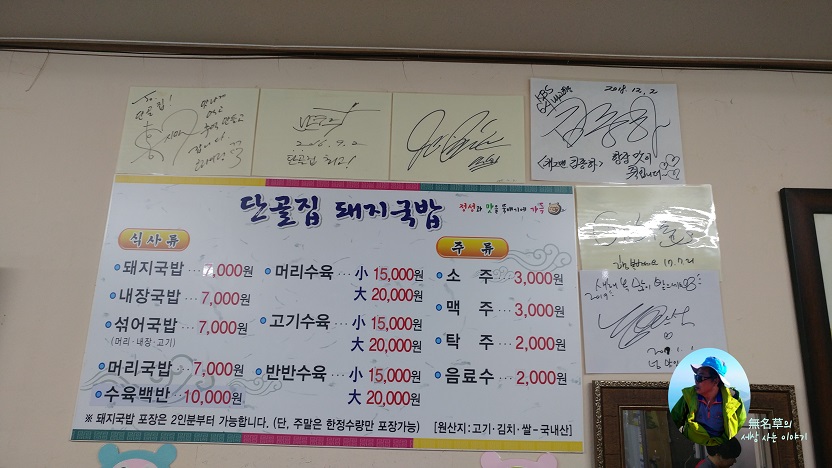 To.
단골집!
2016.9.2
단골집 최고!
KBS
2018.12.2
단골집 돼지국밥
정성과 맛을 뚝배기에 가득
식사류
돼지국밥 ··· 7,000원
내장국밥 ··· 7,000원
섞어국밥 ··· 7,000원
(머리·내장·고기)
머리국밥 ··· 7,000원
수육백반 ·· 10,000원
머리수육 ·· 小 15,000원
大 20,000원
고기수육 ·· 小 15,000원
大 20,000원
반반수육 ·· 小 15,000원
大 20,000원
주류
소 주 ·· 3,000원
맥 주 ·· 3,000원
탁 주 ·· 2,000원
음료수 ·· 2,000원
※ 돼지국밥 포장은 2인분부터 가능합니다. (단, 주말은 한정수량만 포장가능)
[원산지:고기·김치·쌀-국내산]
17.7.21
새해 복 많이 받으세요
2019
無名草의
세상 사는 이야기